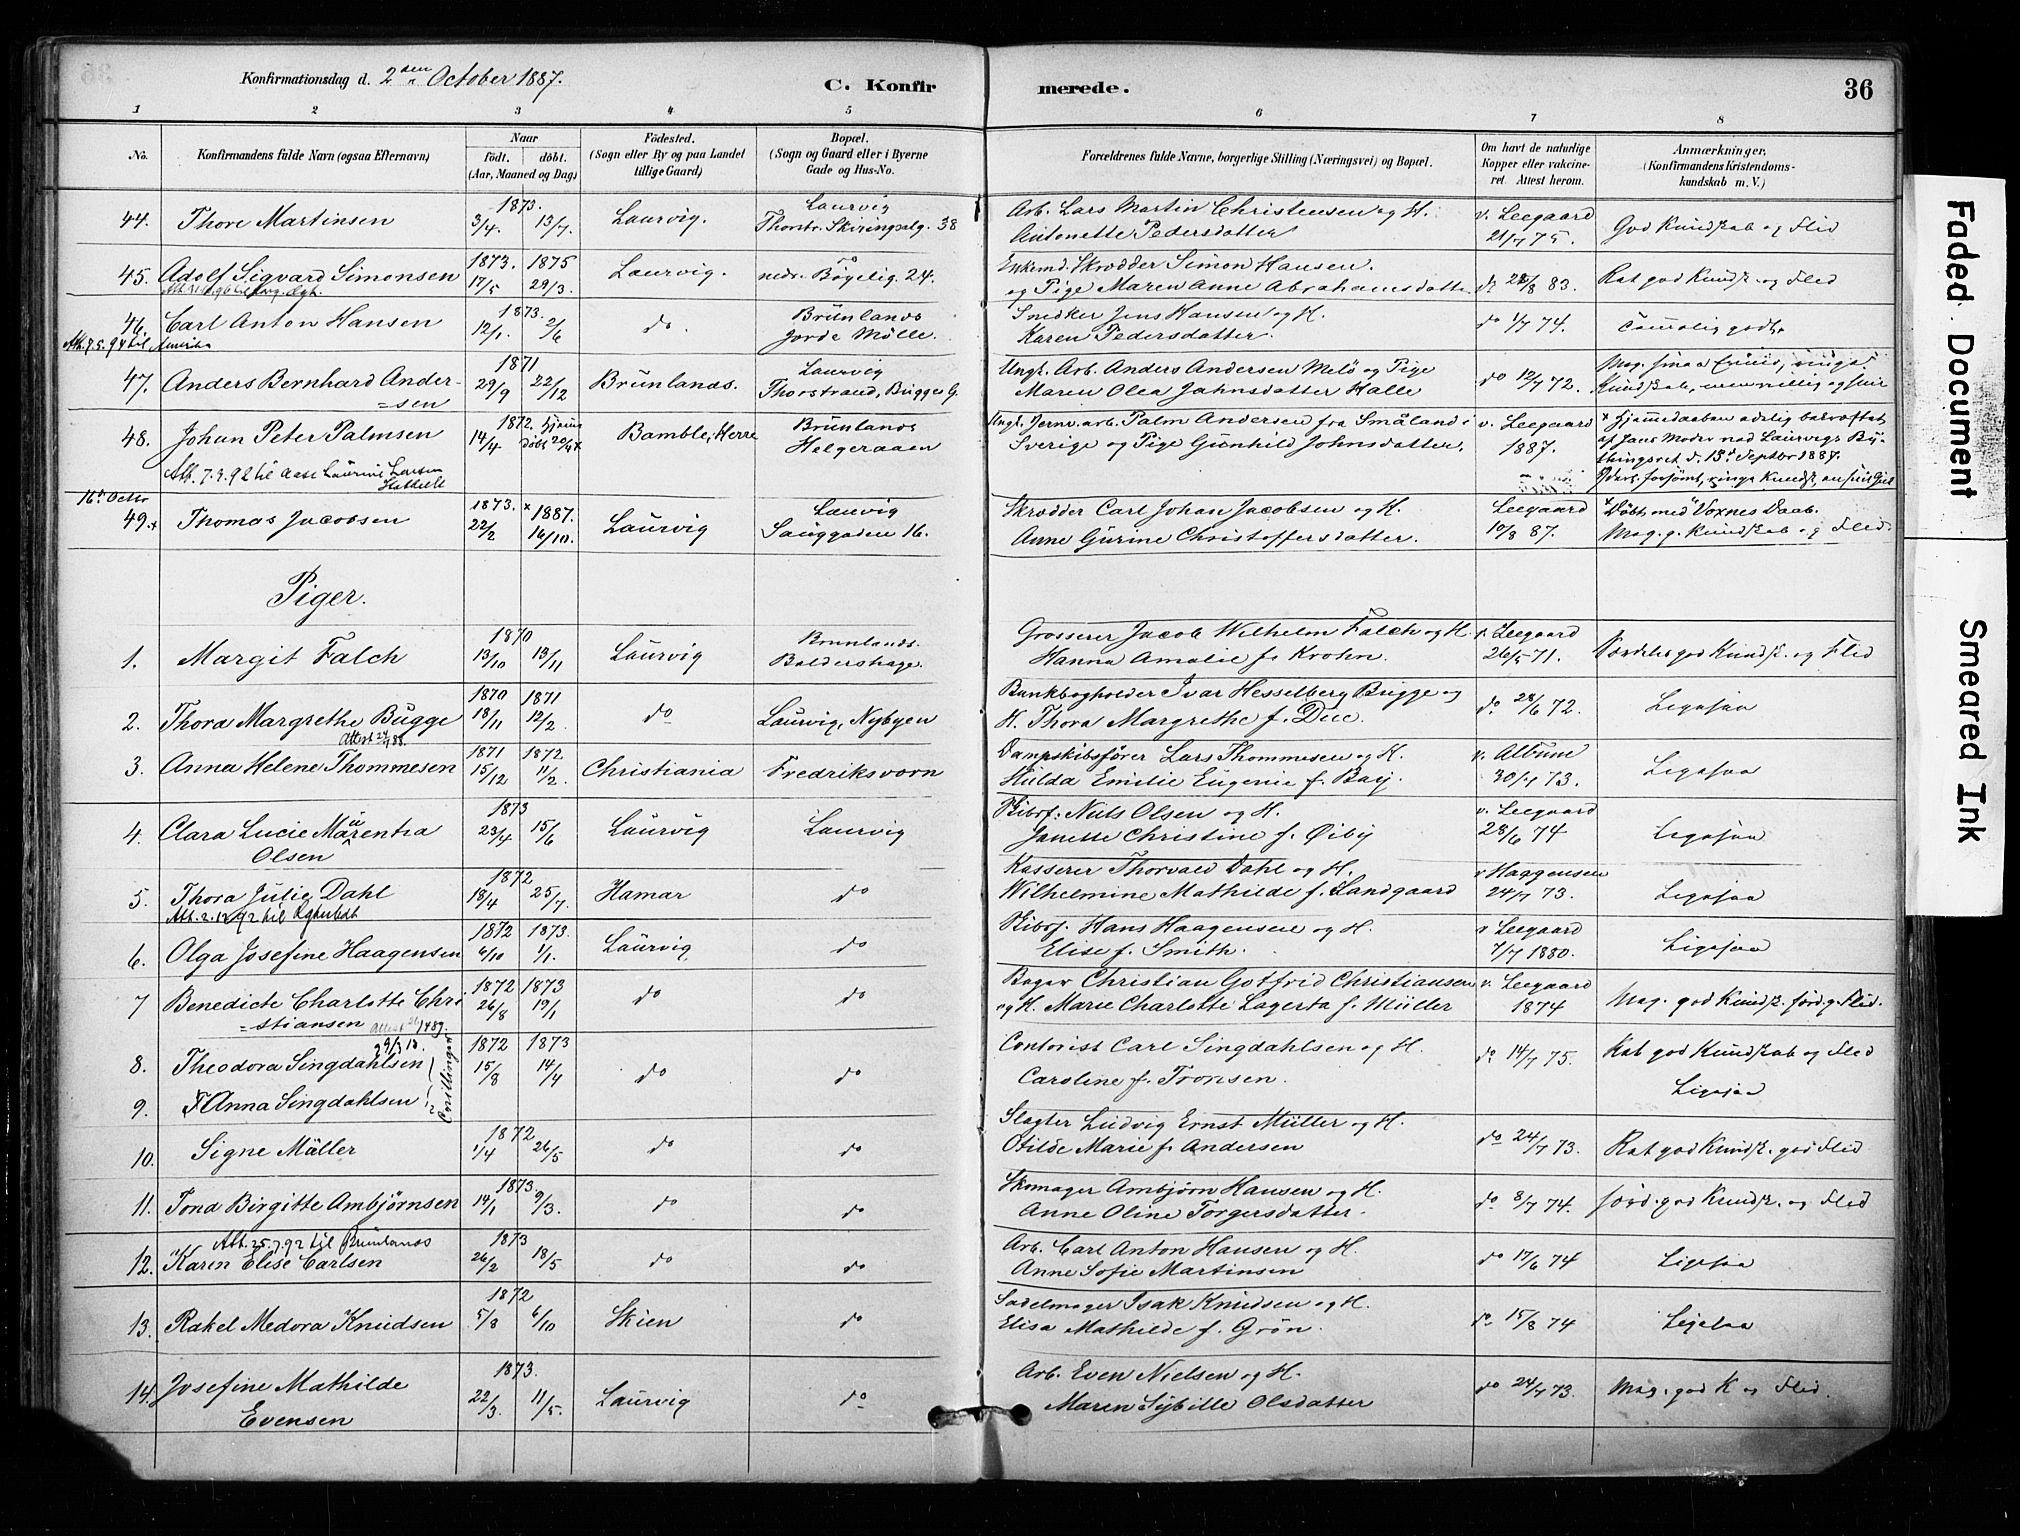 Konfirmationsdag d. 2den October 1887.
C. Konfirmerede.
36
1 2 3 4 5 6 7 8
No.
Konfirmandens fulde Navn (ogsaa Efternavn)
Naar
født. døbt.
(Aar, Maaned og Dag)
Fødested.
(Sogn eller By og paa Landet
tillige Gaard)
Bopæl.
(Sogn og Gaard eller i Byerne
Gade og Hus-No.
Forældrenes fulde Navne, borgerlige Stilling (Næringsvei) og Bopæl.
Om havt de naturlige
Kopper eller vakcine-
ret. Attest herom.
Anmærkninger.
(Konfirmandens Kristendoms-
kundskab m. V.)
44. Thore Martinsen 1873. 3/4. 13/7. Laurvig. Laurvig
Thorstr. Skiringsalg. 38
Arb. Lars Martin Christensen og H.
Antonette Pedersdatter
v. Leegaard
21/7 75.
God Kundskab og Flid
45. Adolf Sigvard Simonsen 1873. 17/5 1875 29/3. Laurvig. do
nedr. Bøgelig. 24.
Enkemd. Skrædder Simon Hansen.
og Pige Maren Anne Abrahamsdatter
do 28/8 83.
Rat god Kundsk. og Flid
46. Carl Anton Hansen 1873. 12/1. 2/6 do. Brunlands
Jorde Mølle.
Att. 7.5.94 til Amerika
Snedker Jens Hansen og H.
Karen Pedersdatter.
do 1/7 74.
47. Anders Bernhard Ander-
=sen
1871 29/9 22/12 Brunlands. Laurvig
Thorstrand, Brygge G.
Ungk. Arb. Anders Andersen Melø og Pige
Maren Olea Jahnsdatter Halle
do 12/7 72.
48. Johan Peter Palmsen 1872. 14/4 Hjemme
døbt 20/4 x
Bamble, Herre Brunlands
Helgeraaen
Att. 7.3.92 til
Ungk. Jernv. arb. Palm Andersen fra Småland i
Sverige og Pige Gunhild Johnsdatter.
v. Leegaard
1887.
x Hjemmedaaben edelig bekræftet
af hans Moder ved Laurvigs By-
thingsret d. 15de Septbr 1887.
16de Octbr
49. x Thomas Jacobsen 1873. 22/2 x 1887. 16/10. Laurvig Laurvig
Sauggaden 16.
Skrædder Carl Johan Jacobsen og H.
Anne Gurine Christoffersdatter.
Leegaard
12/8 87.
x Døbt med Voxnes Daab.
Mag. g. Kundskab og Flid.
Piger.
1. Margit Falch 1870 13/10 13/11 Laurvig Brunlands.
Baldershage.
Grosserer Jacob Wilhelm Falch og H.
Hanna Amalie f. Krohn.
v. Leegaard
26/5 71.
Særdeles god Kundsk. og Flid
2. Thora Margrethe Bugge 1870 18/11 1871 12/2. do Laurvig, Nybyen
Attest 24/7 88.
Bankbogholder Ivar Hesselberg Bugge og
H. Thora Margrethe f. Due.
do 28/6 72.
Ligesaa
3. Anna Helene Thommesen 1871 15/12 1872 11/2. Christiania Fredriksvorn
Dampskibsfører Lars Thommesen og H.
Hulda Emilie Eugenie f. Bay.
v. Album
30/7 73.
Ligesaa
4. Clara Lucie Maurentia
Olsen
1873 23/4 15/6 Laurvig Laurvig
Skibsf. Niels Olsen og H.
Janette Christine f. Øiby
v. Leegaard
28/6 74
Ligesaa
5. Thora Julie Dahl 1872 18/4 25/7. Hamar do
Att. 2.12.92 til
Kasserer Thorvald Dahl og H.
Wilhelmine Mathilde f. Landgaard
v Haggensen
24/7 73.
Ligesaa
6. Olga Josefine Haagensen 1872 6/10 1873. 1/1. Laurvig do
Skibsf. Hans Haagensen og H.
Elise f. Smith.
v Leegaard
7/7 1880.
Ligesaa
7 Benedicte Charlotte Chri
=stiansen
1872 26/8 1873 19/1 do do
Bager Christian Gotfrid Christiansen
og H. Marie Charlotte Lagerta f. Müller
v. Leegaard
1874
Mag. god Kundsk.førd. g. Flid.
8. Theodora Singdahlsen 1872 15/8 1873 14/4 do do
9. Anna Singdahlsen
Contorist Carl Singdahlsen og H.
Caroline f. Tronsen.
do 14/7 75.
Rat god Kundskab og Flid
Ligesaa
10. Signe Müller 1872 1/4 26/5 do do
Slagter Ludvig Ernst Müller og H.
Otilde Marie f. Andersen
do 24/7 73.
Rat god Kundsk. god Flid
11. Tona Birgitte Ambjørnsen 1873. 14/1 9/3. do do
Skomager Ambjørn Hansen og H.
Anne Oline Torgersdatter.
do 8/7 74.
førd. god Kundsk. og Flid
Att. 25.7.92 til Brunlands
12. Karen Elise Carlsen 1873 26/2 18/5 do do
Arb. Carl Anton Hansen og H.
Anne Sofie Martinsen
do 17/6 74
Ligesaa
13. Rakel Medora Knudsen 1872 5/8 6/10 Skien do
Sadelmager Isak Knudsen og H.
Elisa Mathilde f. Grøn.
do 15/8 74
Ligesaa
14. Josefine Mathilde
Evensen
1873. 22/3. 11/5. Laurvig do
Arb. Even Nielsen og H.
Maren Sybille Olsdatter
do 24/7 73.
Mag. god K og Flid.
Faded Document
Smeared Ink